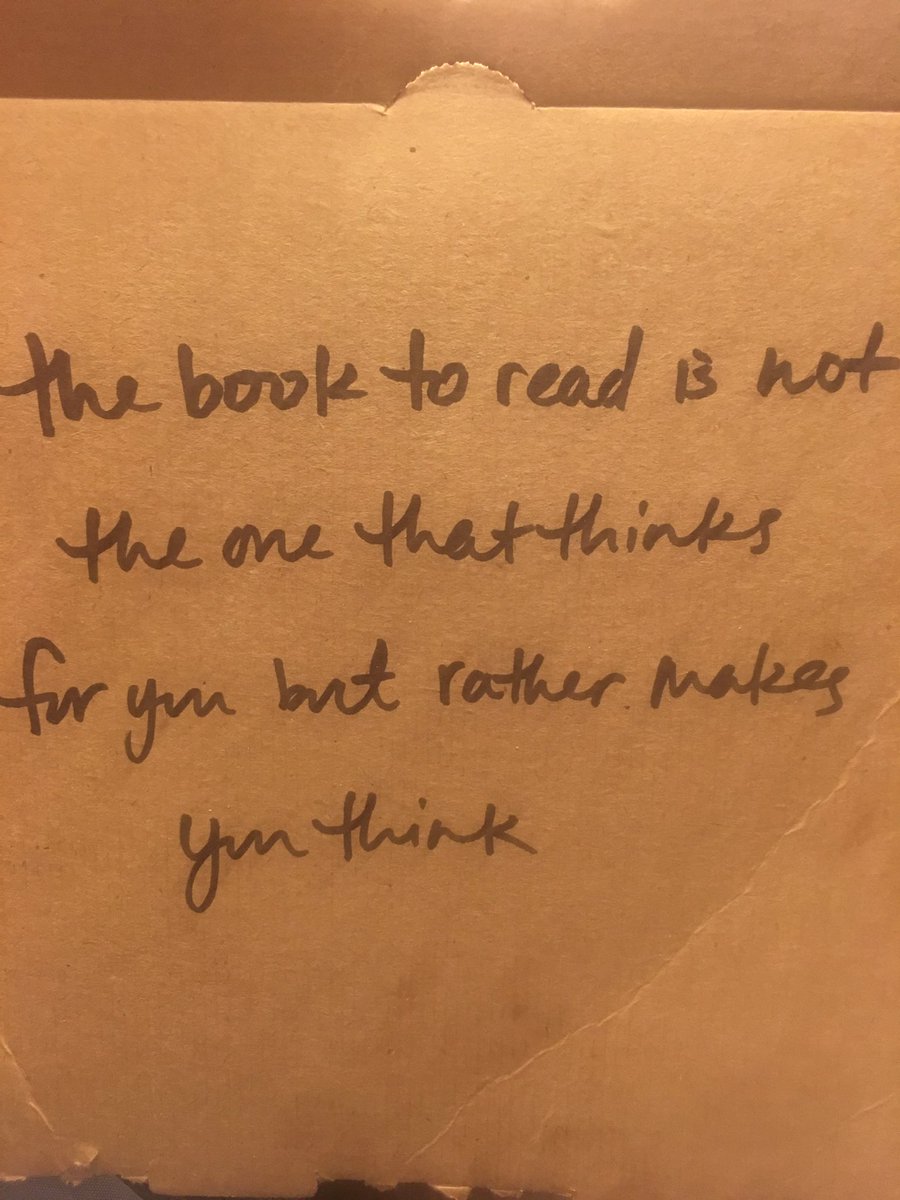 the book to read is not
the one that thinks
for you but rather makes
you think